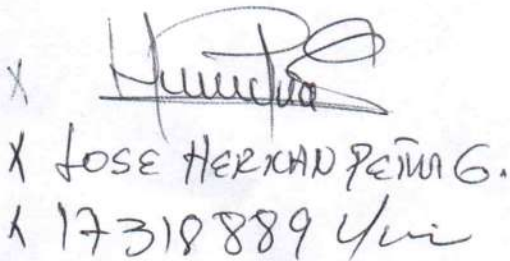 X
X JOSE HERNAN PEÑA G.
X 17318889 V/cio